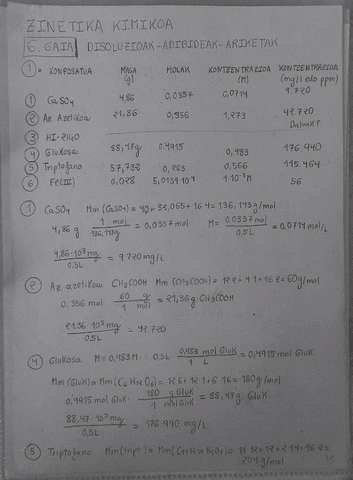 ZINETIKA KIMIKOA
6. GAIA DISOLUZIOAK-ADIBIDEAK-ARIKETAK
① * KONPOSATUA MASA (g) MOLAK KONTZENTRAZIOA (M) KONTZENTRAZIOA (mg/l edo ppm)
① CaSO4 4,86 0,0357 0,0714 9.720
② Az. Azetikoa 21,36 0,356 42.720
③
④ Glukosa 88,47g 0.4915 0,983 176.940
⑤ Triptofano 0,283 0,566 115.464
⑥ Fe(III) 0,028 56
① CaSO4 Mm (CaSO4) = 40+32,065+16·4 = 136,143g/mol
4,86 g 1 mol / 136,143g = 0,0357 mol M= 0,0357 mol / 0,5L = 0,0714 mol/L
4,86·10³ mg / 0,5L = 9.720 mg/L
② Az. azetikoa CH3COOH Mm (CH3COOH) = 12·2+4·1+16·2=60g/mol
0.356 mol 60 g / 1 mol = 21,36g CH3COOH
21.36·10³ mg / 0,5L = 42.720
④ Glukosa M=0,983M 0,5L 0,983 mol Gluk / 1 L = 0,4915 mol Gluk
Mm (Gluk) = Mm (C6H12O6) = 12·6+12·1+6·16 = 180g/mol
0,4915 mol Gluk 180 g Gluk / 1 mol Gluk = 88,47g Gluk
88,47·10³ mg / 0,5L = 176.940 mg/L
⑤ Triptofano Mm (tript) =
204 g/mol